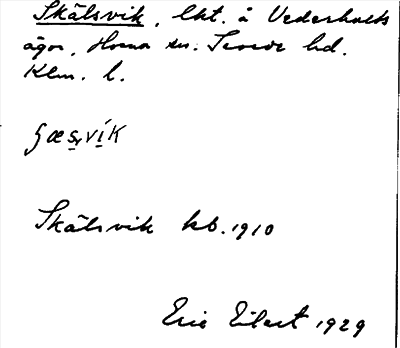 Skälsvik, lht. å Vederhults
ägor, Horna sn. Tveede hd.
Klm. l.
ʃæsvík
Skälsvik kb. 1910
Eric Eilert 1929